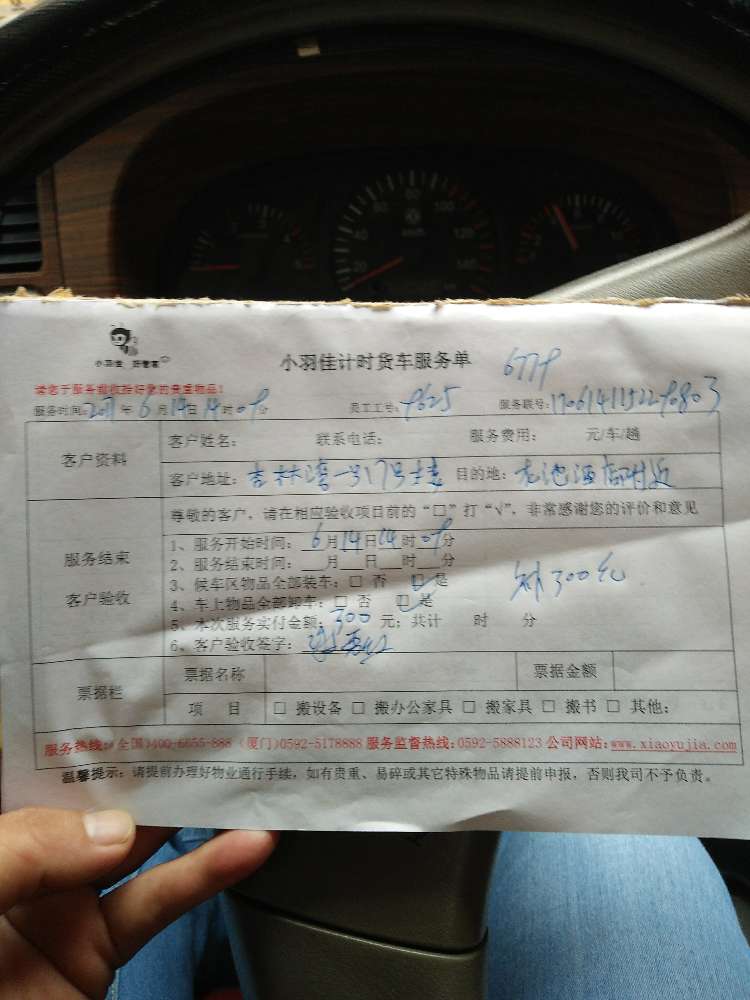 小羽佳 好管家
小羽佳计时货车服务单
6779
请您于服务前收拾好您的贵重物品！
服务时间:2017年6月14日14时09分 员工工号:9625 服务联号:
客户资料
客户姓名： 联系电话： 服务费用： 元/车/趟
客户地址： 目的地：
服务结束
客户验收
尊敬的客户，请在相应验收项目前的“□”打“√”，非常感谢您的评价和意见
1、服务开始时间：6月14日14时09分
2、服务结束时间：___月___日___时___分
3、候车区物品全部装车：□ 否 ☑是
4、车上物品全部卸车：□ 否 ☑是
300元
5、本次服务实付金额：300 元；共计 时 分
6、客户验收签字：
票据栏
票据名称 票据金额
项 目 □ 搬设备 □ 搬办公家具 □ 搬家具 □ 搬书 □ 其他：
服务热线：(全国)400-6655-888（厦门)0592-5178888 服务监督热线:0592-5888123 公司网站:www.xiaoyujia.com
温馨提示：请提前办理好物业通行手续，如有贵重、易碎或其它特殊物品请提前申报，否则我司不予负责。